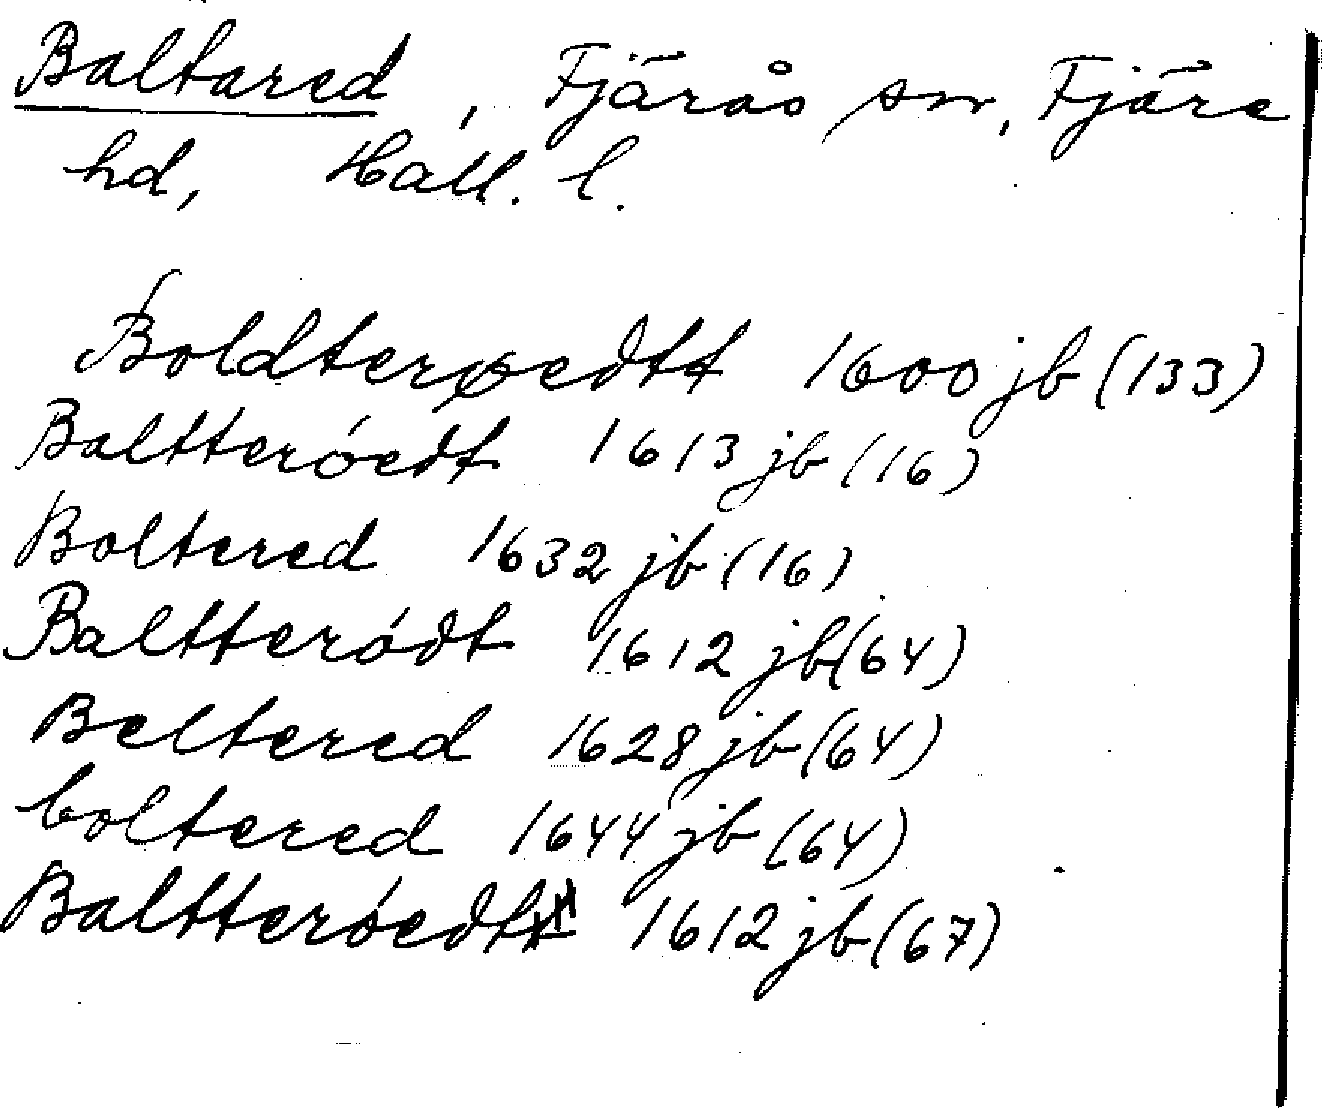 Baltared, Fjärås sn, Fjäre
hd, Hall. l.
Boldterøedtt 1600 jb (133)
Baltteróedt 1613 jb (16)
Boltered 1632 jb (16)
Baltteródt 1612 jb (64)
Beltered 1628 jb (64)
boltered 1644 jb (64)
Baltteróedtt 1612 jb (67)